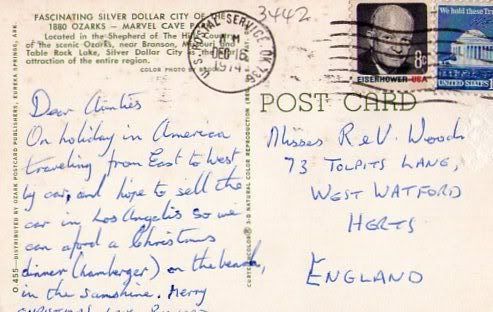 FASCINATING SILVER DOLLAR CITY OF
1880 OZARKS — MARVEL CAVE PA
Located in the Shepherd of The Hills
of the scenic Ozarks, near Branson, Missouri, and
Table Rock Lake, Silver Dollar City is the
attraction of the entire region.
COLOR PHOTO BY
3442
U.S. POSTAL SERVICE, OK 736
AM
DEC 16
1974
EISENHOWER·USA
8c
We hold these
UNITED STATES
POST CARD
O.455—DISTRIBUTED BY OZARK POSTCARD PUBLISHERS, EUREKA SPRINGS, ARK.
3-D NATURAL COLOR REPRODUCTION
Dear Aunties
On holiday in America
traveling from East to West
by car, and hope to sell the
car in Los Angelis so we
can aford a Christmas
dinner (hamberger) on the beach,
in the sunshine. Merry
Misses R e V. Wood
73 TOLPITS LANE,
WEST WATFORD
HERTS
ENGLAND